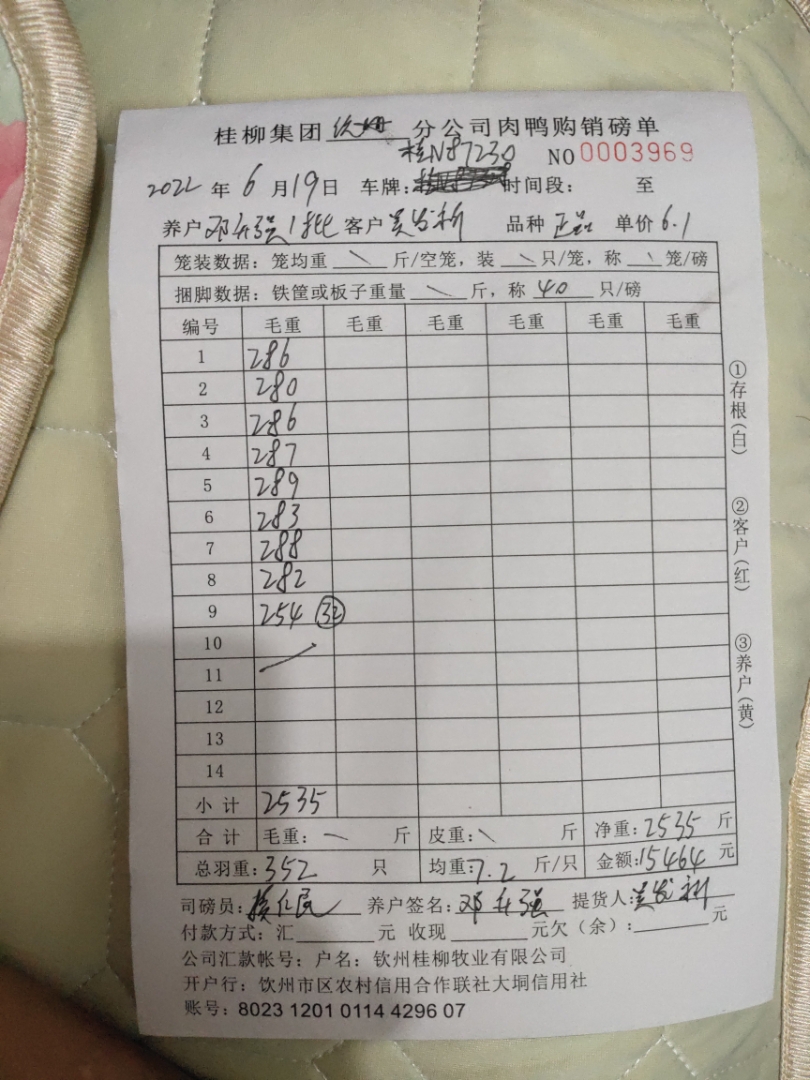 桂柳集团 钦州 分公司肉鸭购销磅单
桂N87230 NO 0003969
2022 年 6 月 19 日 车牌： 时间段： 至
养户 邓升强1批 客户 吴发新 品种 正品 单价 6.1
笼装数据：笼均重 \ 斤/空笼，装 \ 只/笼，称 \ 笼/磅
捆脚数据：铁筐或板子重量 \ 斤，称 40 只/磅
编号 毛重 毛重 毛重 毛重 毛重 毛重
1 286
2 280
3 286
4 287
5 289
6 283
7 288
8 282
9 254 32
10
11
12
13
14
小计 2535
合计 毛重： 斤 皮重：\ 斤 净重：2535 斤
总羽重：352 只 均重：7.2 斤/只 金额：15464 元
司磅员： 养户签名：邓升强 提货人：吴发新
付款方式：汇 元 收现 元欠（余）： 元
公司汇款帐号：户名：钦州桂柳牧业有限公司
开户行：饮州市区农村信用合作联社大垌信用社
账号：8023 1201 0114 4296 07
①存根（白）
②客户（红）
③养户（黄）